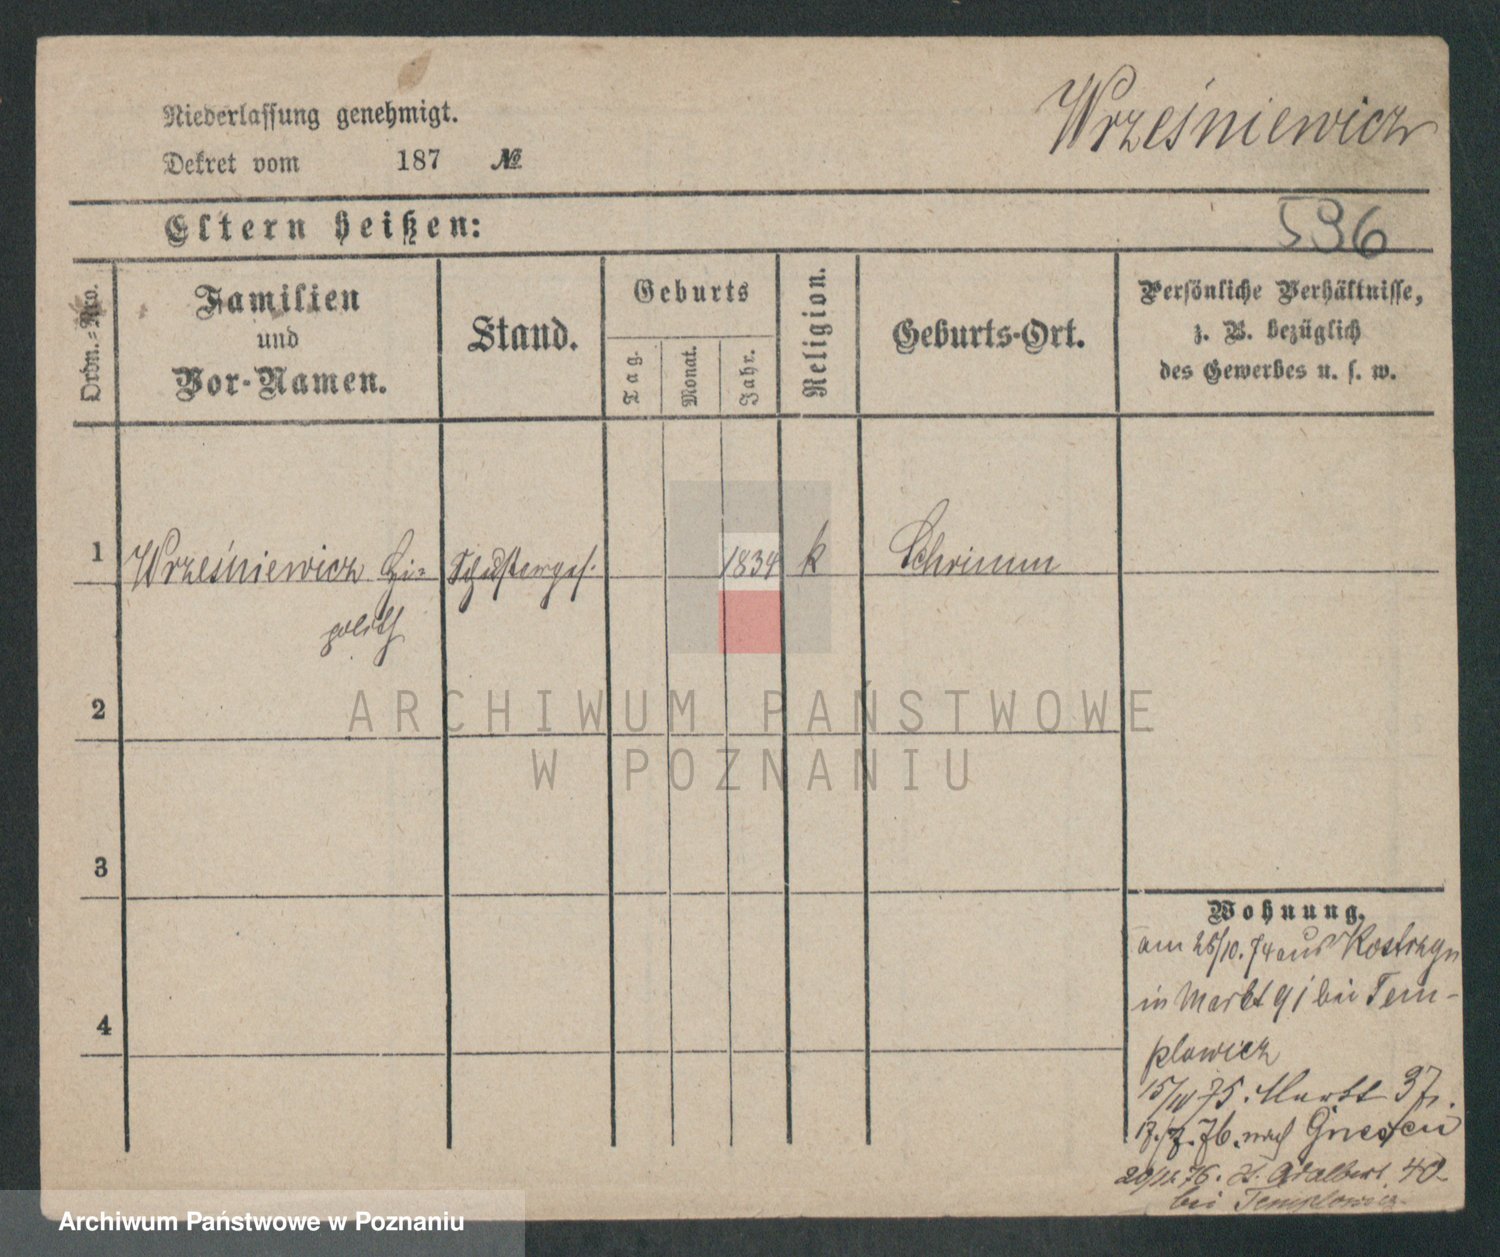 Niederlassung genehmigt.
Wrześniewicz
Dekret vom 187 №
Eltern heißen:
536
Ordn.-Nro.
Familien
und
Vor-Namen.
Stand.
Geburts
Tag.
Monat.
Jahr.
Religion.
Geburts-Ort.
Persönliche Verhältnisse,
z. B. bezüglich
des Gewerbes u. s. w.
1 Wrześniewicz Hi- Schusterges. 1834 k Schrimm
polith
2
ARCHIWUM PAŃSTWOWE
W POZNANIU
3
Wohnung.
am 26/10. 74 aus Kostrzyn
in Markt 91 bei Tem-
plowicz
15/ 75. Markt 37.
76. nach Gnesen
76. St. Adalbert 40
bei Templowicz
4
Archiwum Państwowe w Poznaniu